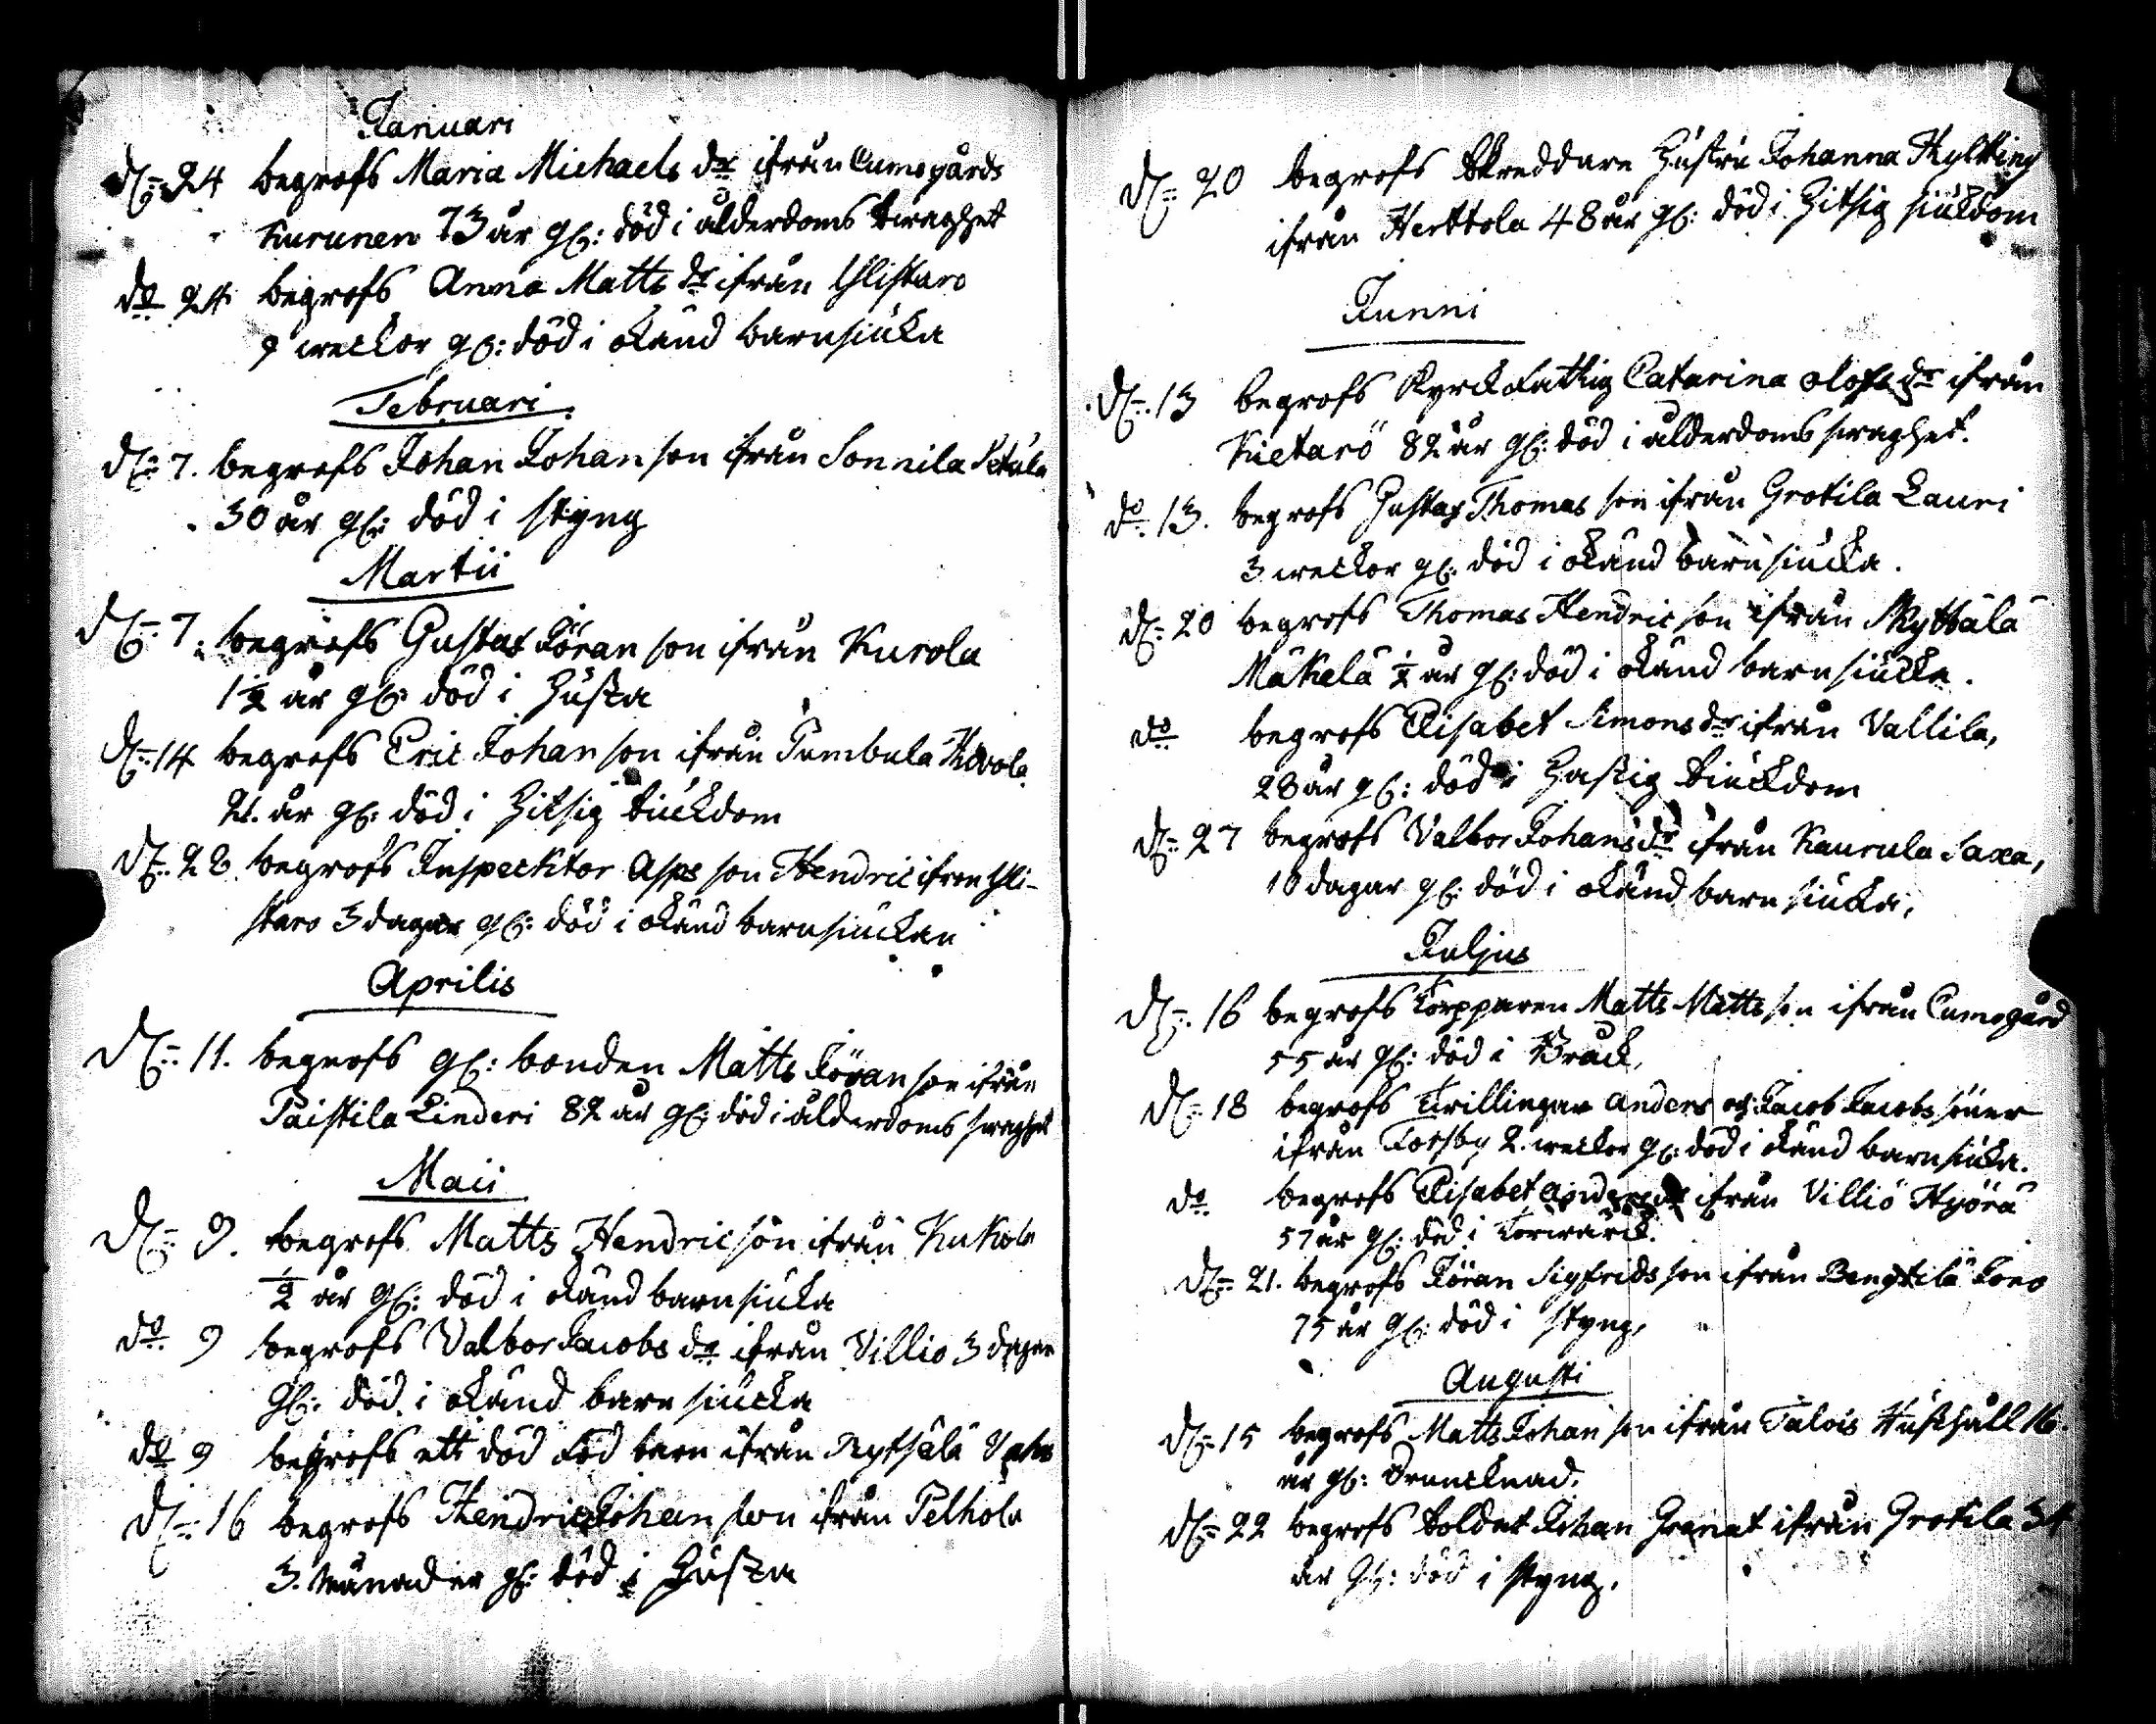 Januari
d. 24 begrofs Maria Michaels dr ifrån Cumogårds
Kurunen 73 år gl: död i ålderdoms swaghet
do 24 begrofs Anna Matts dr ifrån Ylistaro
9 weckor gl: död i okänd barnsiuka
Februari
d. 7. begrofs Johan Johan son ifrån Sonnila Sctala
30 år gl: död i styng
Martii
d. 7. begrofs Gustaf Jöran son ifrån Kurola
1 1/2 år gl: död i Hosta
d. 14 begrofs Eric Johan son ifrån Pumbula
21. år gl: död i Hitsig siuckdom
d. 28 begrofs Inspecktor Asps son Hendric ifrån Yli-
staro 3 dagar gl: död i okänd barnsiuckan
Aprilis
d. 11. begrofs gl: bonden Matts Jöran son ifrån
Paistila Linderi 82 år gl: död i ålderdoms swaghet
Maii
d. 9. begrofs Matts Hendric son ifrån Kukola
1/2 år gl: död i okänd barnsiuka
do 9 begrofs Valbor Jacobs dr ifrån Villio 3 dagar
gl: död i okänd barn siucka
do 9 begrofs ett död föd barn ifrån Ryttsälä
d. 16 begrofs Hendric Johan son ifrån Pelhola
3. Månader gl: död i Hosta
d. 20 begrofs Skreddare Hustru Johanna
ifrån Herttola 48 år gl: död i Hitsig siukdom
Junni
d. 13 begrofs Kyrckfattig Catarina Olofs dr ifrån
Kietarö 82 år gl: död i ålderdoms swaghet.
do 13. begrofs Gustaf Thomas son ifrån Grotila Lauri
3 weckor gl: död i okänd barnsiucka.
d. 20 begrofs Thomas Hendric son ifrån Ryttälä
Mäkelä 1/2 år gl: död i okänd barnsiucka.
do begrofs Elisabet Simons dr ifrån Vallila,
28 år gl: död i Hastig siuckdom
d. 27 begrofs Valbor Johans dr ifrån Kaurula Saxa,
10 dagar gl: död i okänd barnsiucka,
Juljus
d. 16 begrofs Torpparen Matts Matts son ifrån Cumogård
55 år gl: död i Bråck,
d. 18 begrofs Twillingar Anders och Jacob Jacobs söner
ifrån Forsby 2. weckor gl: död i okänd barnsiuka.
do begrofs Elisabet Anders dr ifrån Villiö Hyörä
57 år gl: död i Torrwärck.
d. 21. begrofs Jöran Sigfrids son ifrån Bengtilä
75 år gl: död i styng,
Augusti
d. 15 begrofs Matts Johan son ifrån Talois Hushåll 16.
år gl: Druncknad.
d. 22 begrofs Soldat Johan Granat ifrån Grotila 34
år gl: död i styng.